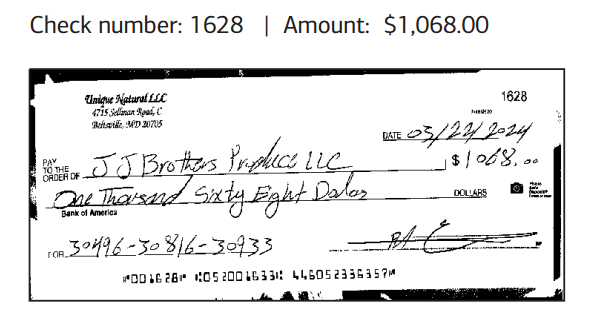 Check number: 1628 | Amount: $1,068.00
1628
Unique Natural LLC
4715 Sellman Road, C
Beltsville, MD 20705
DATE 03/22/2024
PAY TO THE ORDER OF JJ Brothers Produce LLC $1068.00
One Thousand Sixty Eight Dolars DOLLARS
Bank of America
FOR 30496-30816-30933
⑈001628⑈ ⑆052001633⑆ 446052336357⑈